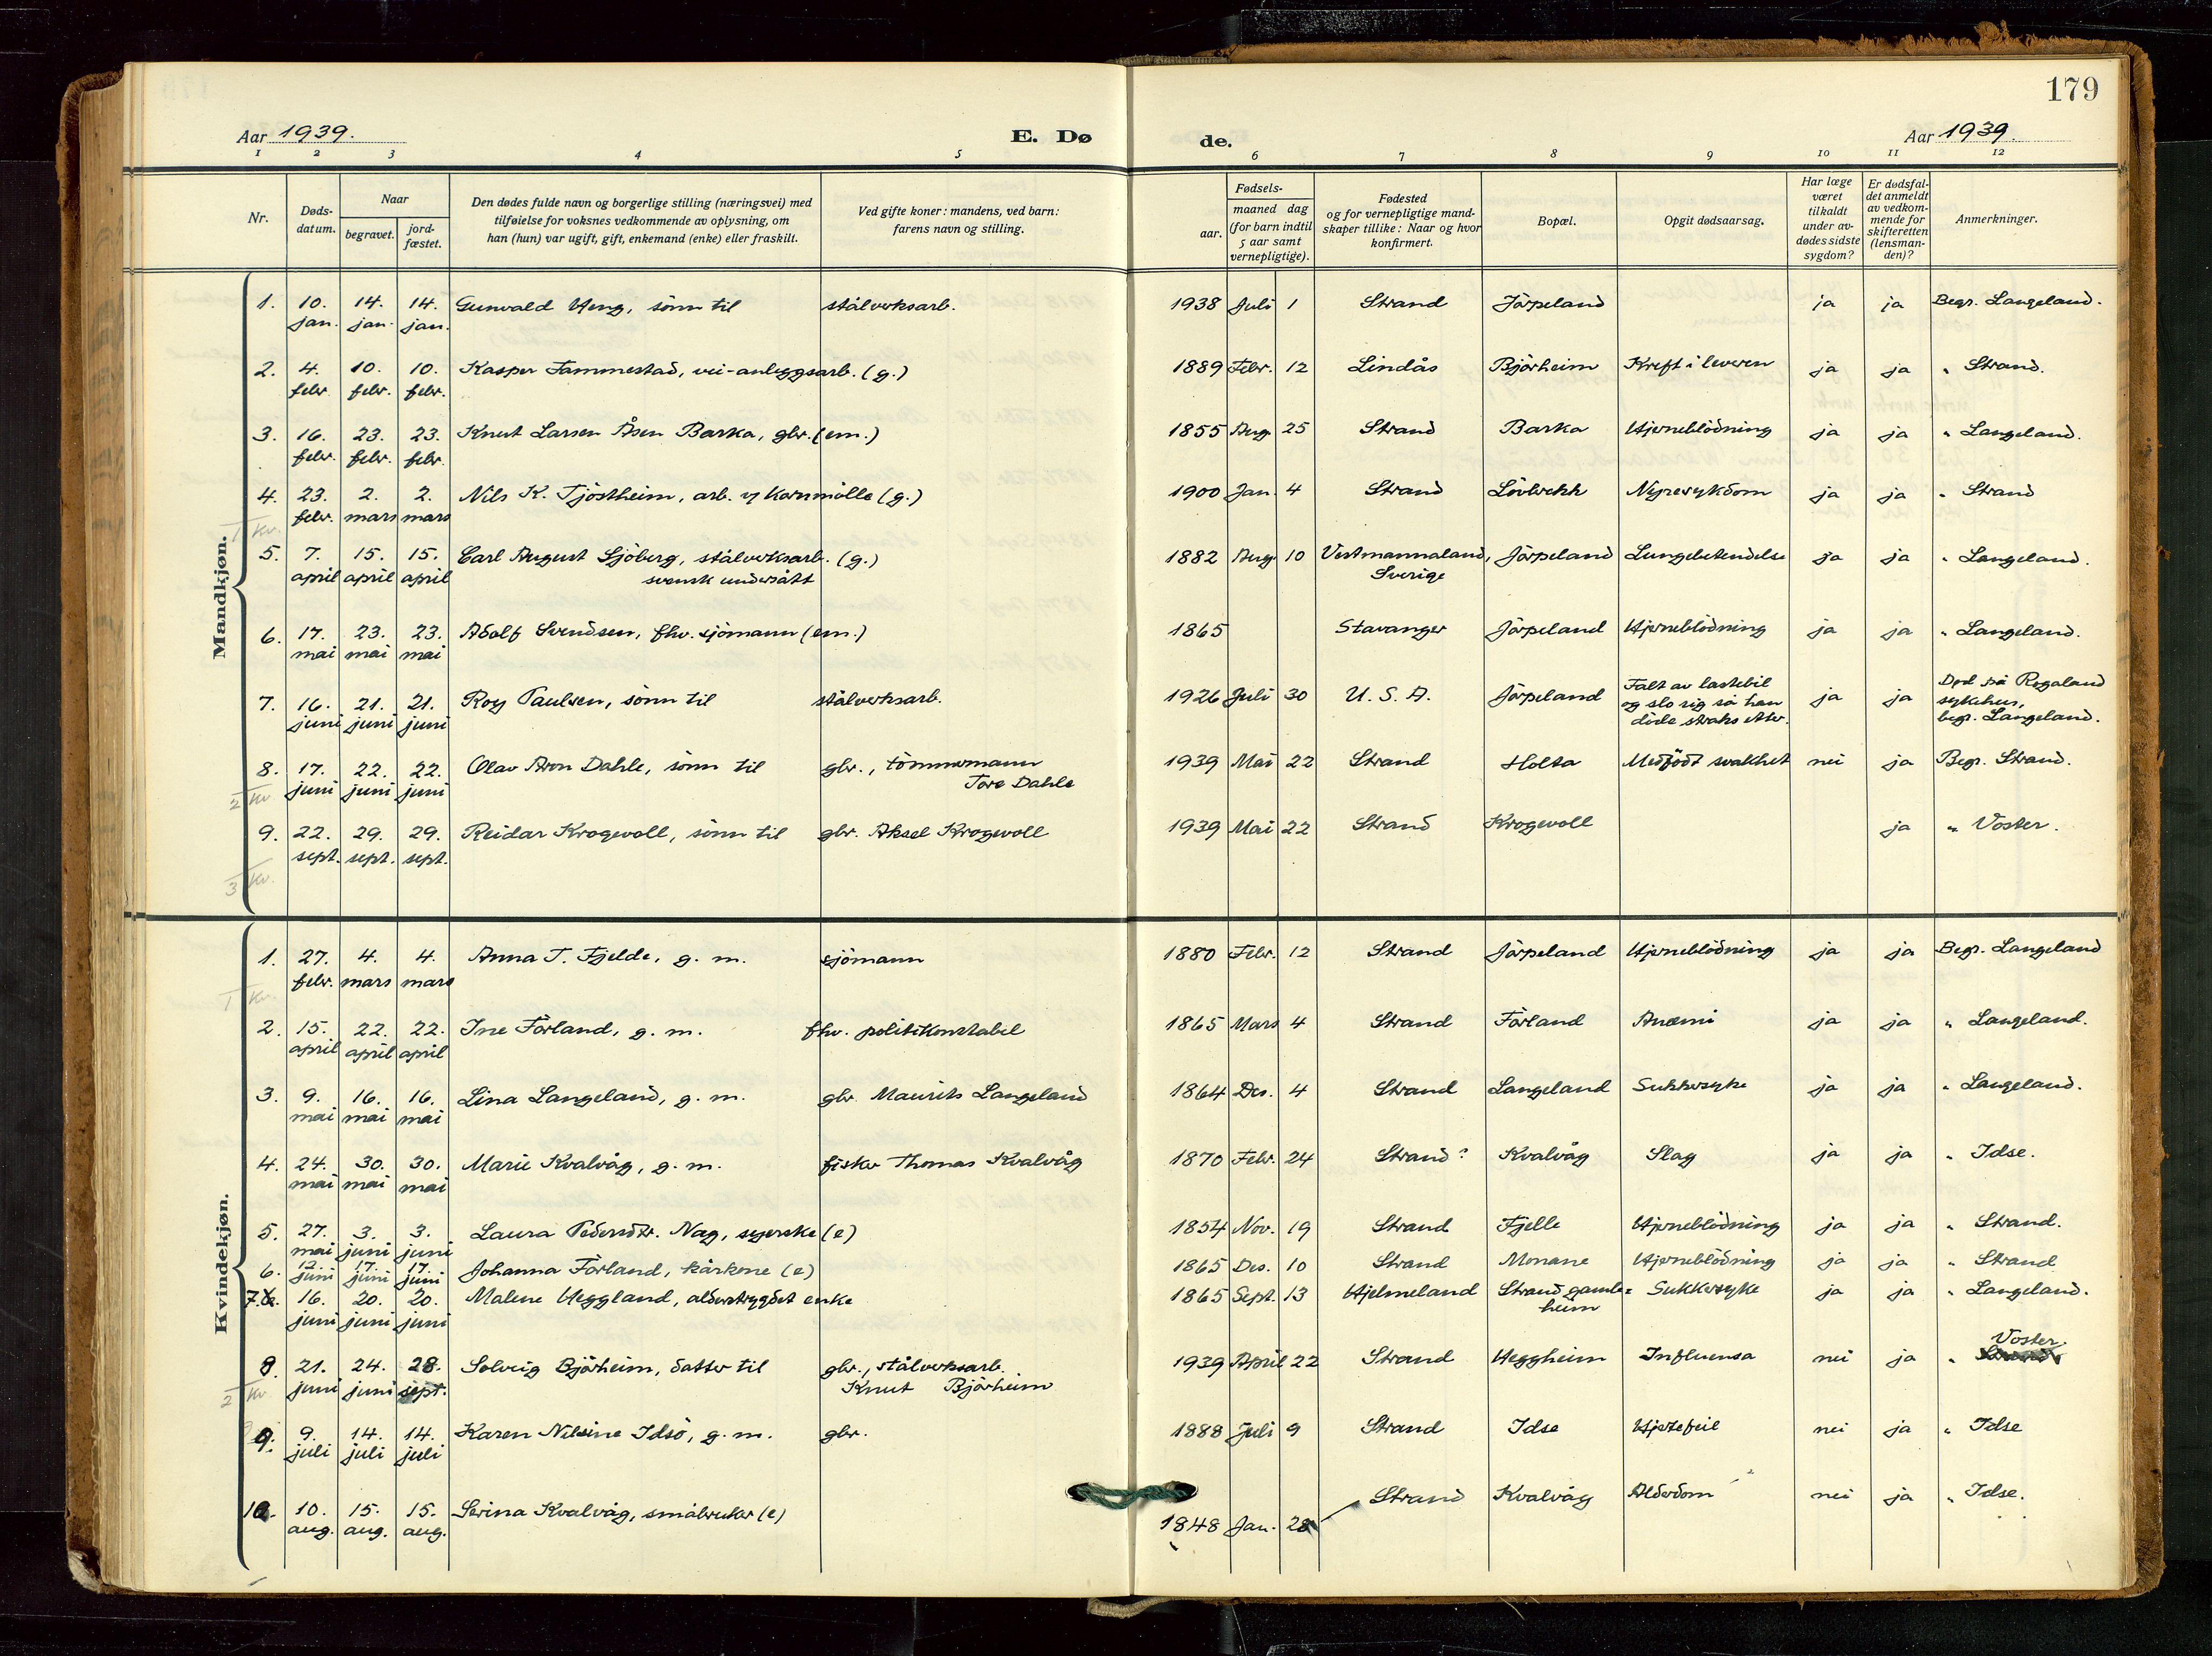 179
Aar 1939.
E. Dø
de.
Aar 1939.
1 2 3 4 5 6 7 8 9 10 11 12
Nr.
Døds-
datum.
Naar
begravet.
jord-
fæstet.
Den dødes fulde navn og borgerlige stilling (næringsvei) med
tilføielse for voksnes vedkommende av oplysning, om
han (hun) var ugift, gift, enkemand (enke) eller fraskilt.
Ved gifte koner: mandens, ved barn:
farens navn og stilling.
Fødsels-
aar.
maaned dag
(for barn indtil
5 aar samt
vernepligtige).
Fødested
og for vernepligtige mand-
skaper tillike: Naar og hvor
konfirmert.
Bopæl.
Opgit dødsaarsag.
Har læge
været
tilkaldt
under av-
dødes sidste
sygdom?
Er dødsfal-
det anmeldt
av vedkom-
mende for
skifteretten
(lensman-
den)?
Anmerkninger.
Mandkjøn.
1. 10. 14. 14. Gunvald Heng, sönn til stålverksarb. 1938 Juli 1 Strand Jörpeland ja ja Begr. Langeland.
jan. jan. jan.
2. 4. 10. 10. Kasper Fammestad, vei-anleggsarb. (g.) 1889 Febr. 12 Lindås Björheim Kreft i leveren ja ja " Strand.
febr. febr. febr.
3. 16. 23. 23. Knut Larsen Åsen Barka, gbr. (em.) 1855 Aug 25 Strand Barka Hjerneblödning ja ja " Langeland.
febr. febr. febr.
4. 23. 2. 2. Nils K. Tjöstheim, arb. v/ Kornmölle (g.) 1900 Jan. 4 Strand Lövbrekk Nyresykdom ja ja " Strand
febr. mars mars
1 Kv.
5. 7. 15. 15. Carl August Sjöberg, stålverksarb. (g.) 1882 Aug 10 Vestmannaland, Jörpeland Lungebetendelse ja ja " Langeland.
april april april svensk undersått Sverige
6. 17. 23. 23. Adolf Svendsen, fhv. sjömann (em.) 1865 Stavanger Jörpeland Hjerneblödning ja ja " Langeland.
mai mai mai
7. 16. 21. 21. Roy Paulsen, sönn til stålverksarb. 1926 Juli 30 U. S. A. Jörpeland Falt av lastebil ja ja Död på Rogaland
juni juni juni og slo sig så han sykehus,
döde straks etter. begr. Langeland.
8. 17. 22. 22. Olav Aron Dahle, sönn til gbr., tömmermann 1939 Mai 22 Strand Holta Medfödt svakhet nei ja Begr. Strand.
juni juni juni Tore Dahle
2 Kv.
9. 22. 29. 29. Reidar Krogevoll, sönn til gbr. Aksel Krogevoll 1939 Mai 22 Strand Krogevoll ja " Voster.
sept. sept. sept.
3 Kv.
Kvindekjøn.
1. 27. 4. 4. Anna T. Fjelde, g. m. sjömann 1880 Febr. 12 Strand Jörpeland Hjerneblödning ja ja Begr. Langeland
febr. mars mars
1 Kv.
2. 15. 22. 22. Ine Förland, g. m. fhv. politikonstabel 1865 Mars 4 Strand Förland Anæmi ja ja " Langeland.
april april april
3. 9. 16. 16. Lina Langeland, g. m. gbr. Maurits Langeland 1864 Des. 4 Strand Langeland Sukkersyke ja ja " Langeland.
mai mai mai
4. 24. 30. 30. Marie Kvalvåg, g. m. fisker Thomas Kvalvåg 1870 Febr. 24 Strand? Kvalvåg Slag ja ja " Idse.
mai mai mai
5. 27. 3. 3. Laura Pedersdtr. Nag, syerske (e) 1854 Nov. 19 Strand Fjelle Hjerneblödning ja ja " Strand.
mai juni juni
6. 12. 17. 17. Johanna Förland, kårkone (e) 1865 Des. 10 Strand Monane Hjerneblödning ja ja " Strand
juni juni juni
7. 16. 20. 20. Malene Heggland, alderstrygdet enke 1865 Sept. 13 Hjelmeland Strand gamle= Sukkersyke ja ja " Langeland.
juni juni juni heim
8. 21. 24. 28. Solveig Björheim, datter til gbr., stålverksarb. 1939 April 22 Strand Heggheim Influensa nei ja " Voster.
juni juni sept. Knut Björheim
2 Kv.
9. 9. 14. 14. Karen Nilsine Idsö, g. m. gbr. 1888 Juli 9 Strand Idse Hjertefeil nei ja " Idse
juli juli juli
10. 10. 15. 15. Serina Kvalvåg, småbruker (e) 1848 Jan. 28 Strand Kvalvåg Alderdom nei ja " Idse.
aug. aug. aug.